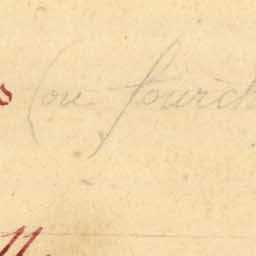 s (ou fourch
ll